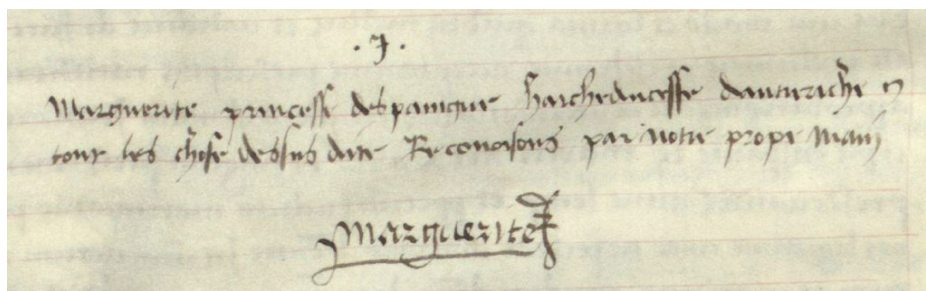 Marguerite princesse despaingne harcheducesse dauteriche &
tout les chose dessus dite Reconoisons par notre prope main
Marguerite